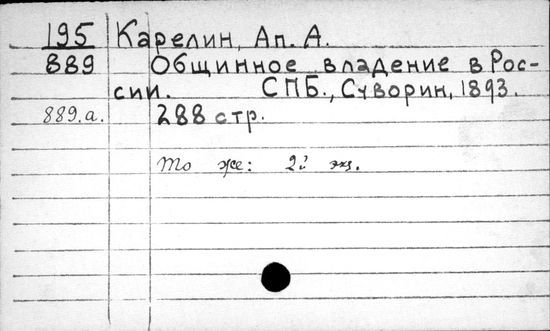 195 Карелин, Ап. А.
889 Общинное владение в Рос-
сии. СПБ., Суворин, 1893.
889.а. 288 стр.
То же: 2й экз.